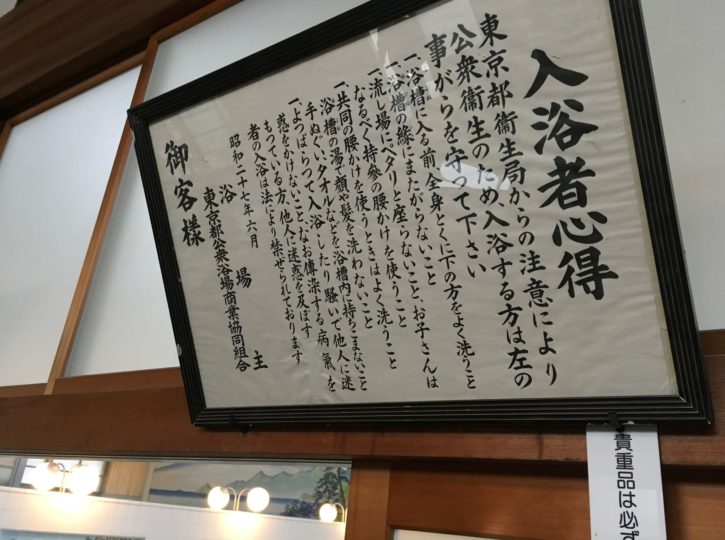 入浴者心得
東京都衞生局からの注意により
公衆衞生のため、入浴する方は左の
事がらを守つて下さい
一、浴槽に入る前、全身とくに下の方をよく洗うこと
一、浴槽の縁にまたがらないこと
一、流し場にペタリと座らないこと、お子さんは
なるべく持參の腰かけを使うこと
一、共同の腰かけを使うときはよく洗うこと
一、浴槽の湯で顔や髪を洗わないこと
手ぬぐい、タオルなどを、浴槽内に持ちこまないこと
一、よつぱらつて入浴したり騒いで他人に迷
惑をかけないこと、なお傳染する病氣を
もつている方、他人に迷惑を及ぼす
者の入浴は法により禁ぜられております
昭和二十七年六月
浴場主
東京都公衆浴場商業協同組合
御客様
貴重品は必ず